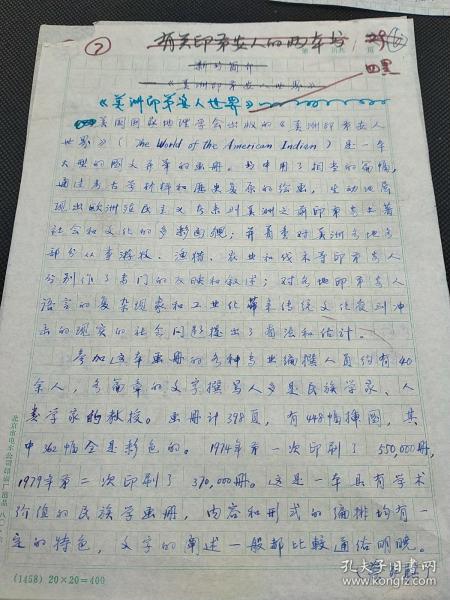 ⑦ 有关印第安人的两本书
新书简介
《美洲印第安人世界》
四黑
《美洲印第安人世界》
美国国家地理学会出版的《美洲印第安人
世界》(The World of the American Indian)是一本
大型的图文并茂的画册。书中用了相当的篇幅,
通过考古学材料和历史复原的绘画,生动地展
现出欧洲殖民主义者来到美洲之前印第安土著
社会和文化的多彩面貌;并着重对美洲各地各
部分从事游牧、渔猎、农业和伐木等印第安人
分别作了专门的反映和叙述;对各地印第安人
语言的复杂现象和工业化带来传统文化受到冲
击的现实的社会问题提出了看法和估计。
参加这本画册的各种专业编撰人员约有40
余人,各篇章的文字撰写人多是民族学家、人
类学家的教授。画册计398页,有448幅插图,其
中362幅全是彩色的。1974年第一次印刷了550,000册,
1979年第二次印刷了370,000册。这是一本具有学术
价值的民族学画册,内容和形式的编排均有一
定的特色,文字的阐述一般都比较通俗明晓。
北京市电车公司印刷厂出品
(1458) 20×20=400
孔夫子旧书网